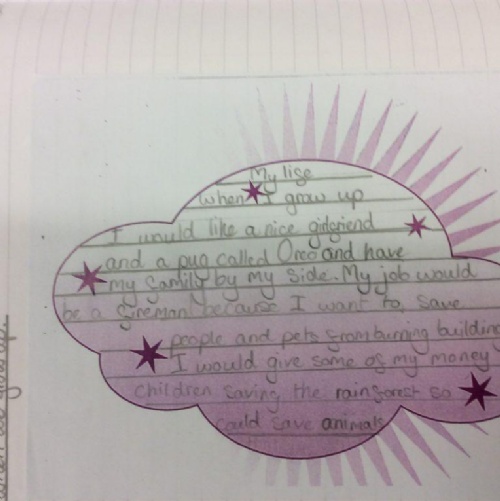 My life
when I grow up
I would like a nice girlfriend
and a pug called Oreo and have
my family by my side. My job would
be a fireman because I want to save
people and pets from burning building
I would give some of my money
Children saving the rainforest so
could save animals